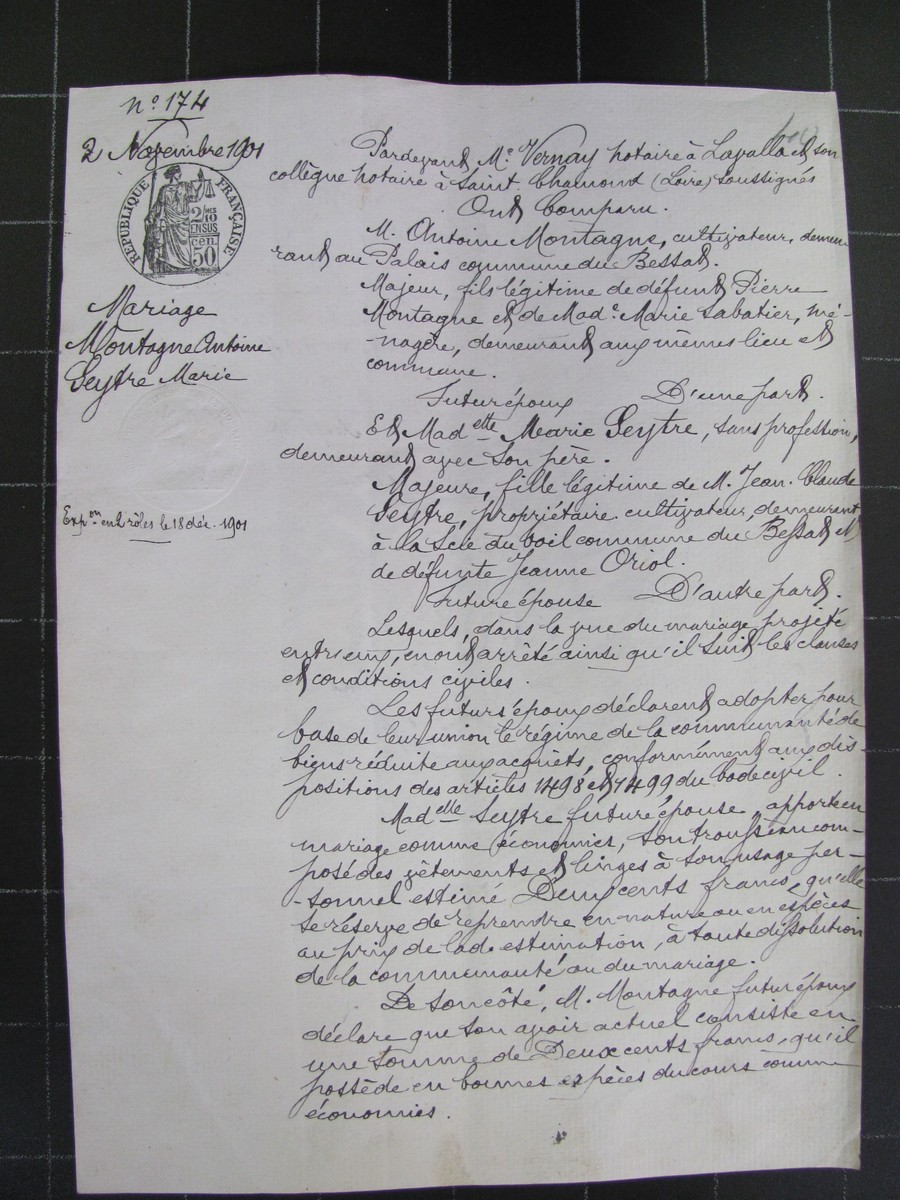 N° 174
2 Novembre 1901
RÉPUBLIQUE FRANÇAISE
2/10
EN SUS
50 cen.
Mariage
Montagne Antoine
Seytre Marie
Exp.on en 2 rôles le 18 déc. 1901
Pardevant Me Vernay notaire à Lavalla et son
collègue notaire à Saint Chamond (Loire) soussignés
Ont Comparu.
M. Antoine Montagne, cultivateur, demeu-
rant au Palais commune du Bessat.
Majeur, fils légitime de défunt Pierre
Montagne et de Made Marie Sabatier, mé-
nagère, demeurant aux mêmes lieu et
commune.
Futur époux D'une part.
Et Madelle Marie Seytre, sans profession,
demeurant avec son père.
Majeure, fille légitime de M. Jean Claude
Seytre, propriétaire cultivateur, demeurant
à la Scie du commune du Bessat et
de défunte Jeanne Oriol.
Future épouse D'autre part.
Lesquels, dans la vue du mariage projeté
entr'eux, en ont arrêté ainsi qu'il suit les clauses
et conditions civiles.
Les futurs époux déclarent adopter pour
base de leur union le régime de la communauté de
biens réduite aux acquêts, conformément aux dis-
positions des articles 1498 et 1499 du Code civil.
Madelle Seytre future épouse, apporte en
mariage comme économies, son trousseau com-
posé des vêtements et linges à son usage per-
-sonnel estimé Deux cents francs, qu'elle
se réserve de reprendre en nature ou en espèces
au prix de lade estimation, à toute dissolution
de la communauté ou du mariage.
De son côté, M. Montagne futur époux
déclare que son avoir actuel consiste en
une somme de Deux cents francs, qu'il
possède en bonnes espèces du cours comme
économies.